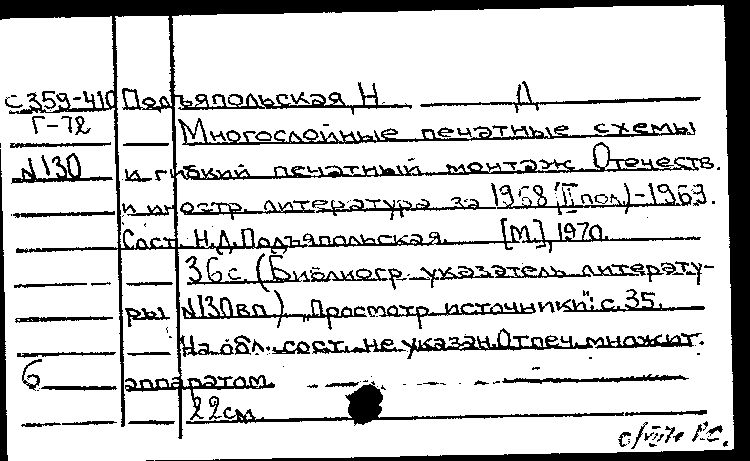 С359-410 Подъяпольская, Н Д
Г-72 Многослойные печатные схемы
N130 и гибкий печатный монтаж. Отечеств.
и иностр. литература за 1968 (II пол.)-1969.
Сост. Н.Д.Подъяпольская. [М.], 1970.
36с. (Библиогр. указатель литерату-
ры N130вп). „Просмотр. источники": с. 35.
На обл. сост. не указан. Отпеч. множит.
6 аппаратом.
22см.